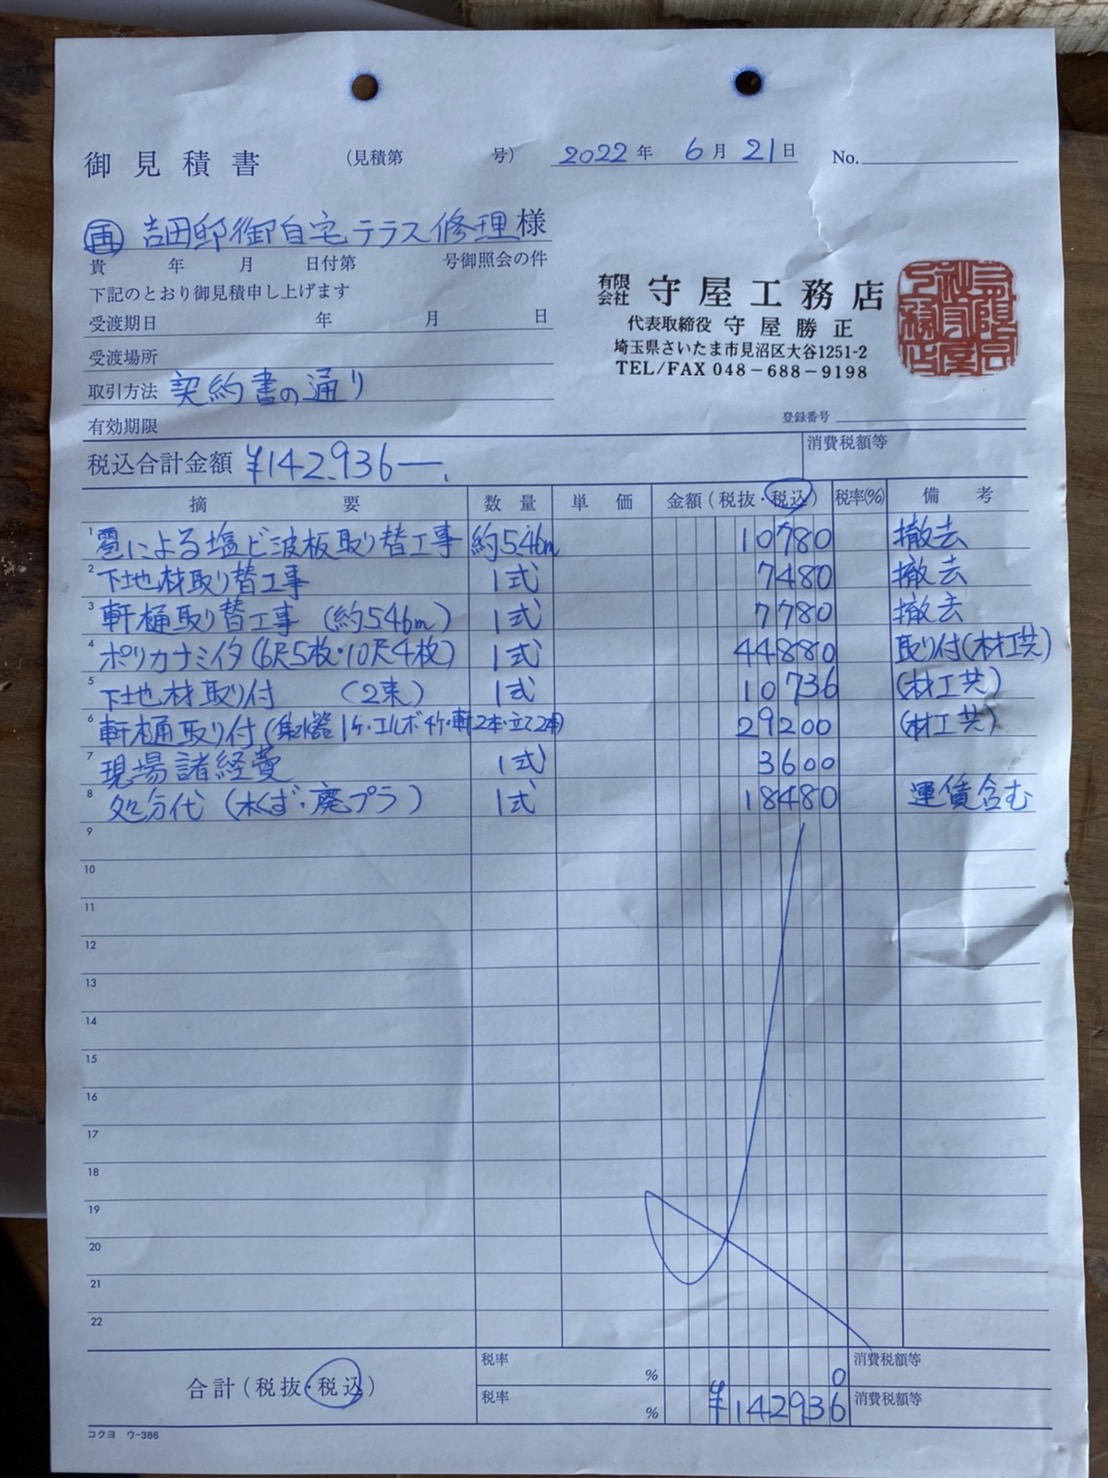 御見積書 (見積第 号) 2022年 6月 21日 No.
再 吉田邸御自宅テラス修理様
貴 年 月 日付第 号御照会の件
下記のとおり御見積申し上げます
受渡期日 年 月 日
受渡場所
取引方法 契約書の通り
有効期限
有限会社 守屋工務店
代表取締役 守屋勝正
埼玉県さいたま市見沼区大谷1251-2
TEL/FAX 048-688-9198
登録番号
税込合計金額 ¥142,936-. 消費税額等
摘要 数量 単価 金額(税抜・税込) 税率(%) 備考
1 雹による塩ビ波板取り替工事 約5.46m 10780 撤去
2 下地材取り替工事 1式 7480 撤去
3 軒樋取り替工事 (約5.46m) 1式 7780 撤去
4 ポリカナミイタ(6尺5枚・10尺4枚) 1式 44880 取り付(材工共)
5 下地材取り付 (2束) 1式 10736 (材工共)
6 軒樋取り付(集水器1ケ・エルボ4ケ・軒2本・立て2本) 29200 (材工共)
7 現場諸経費 1式 3600
8 処分代 (木くず・廃プラ) 1式 18480 運賃含む
9
10
11
12
13
14
15
16
17
18
19
20
21
22
合計(税抜・税込) 税率 % 0 消費税額等
税率 % ¥142936 消費税額等
コクヨ ウ-386